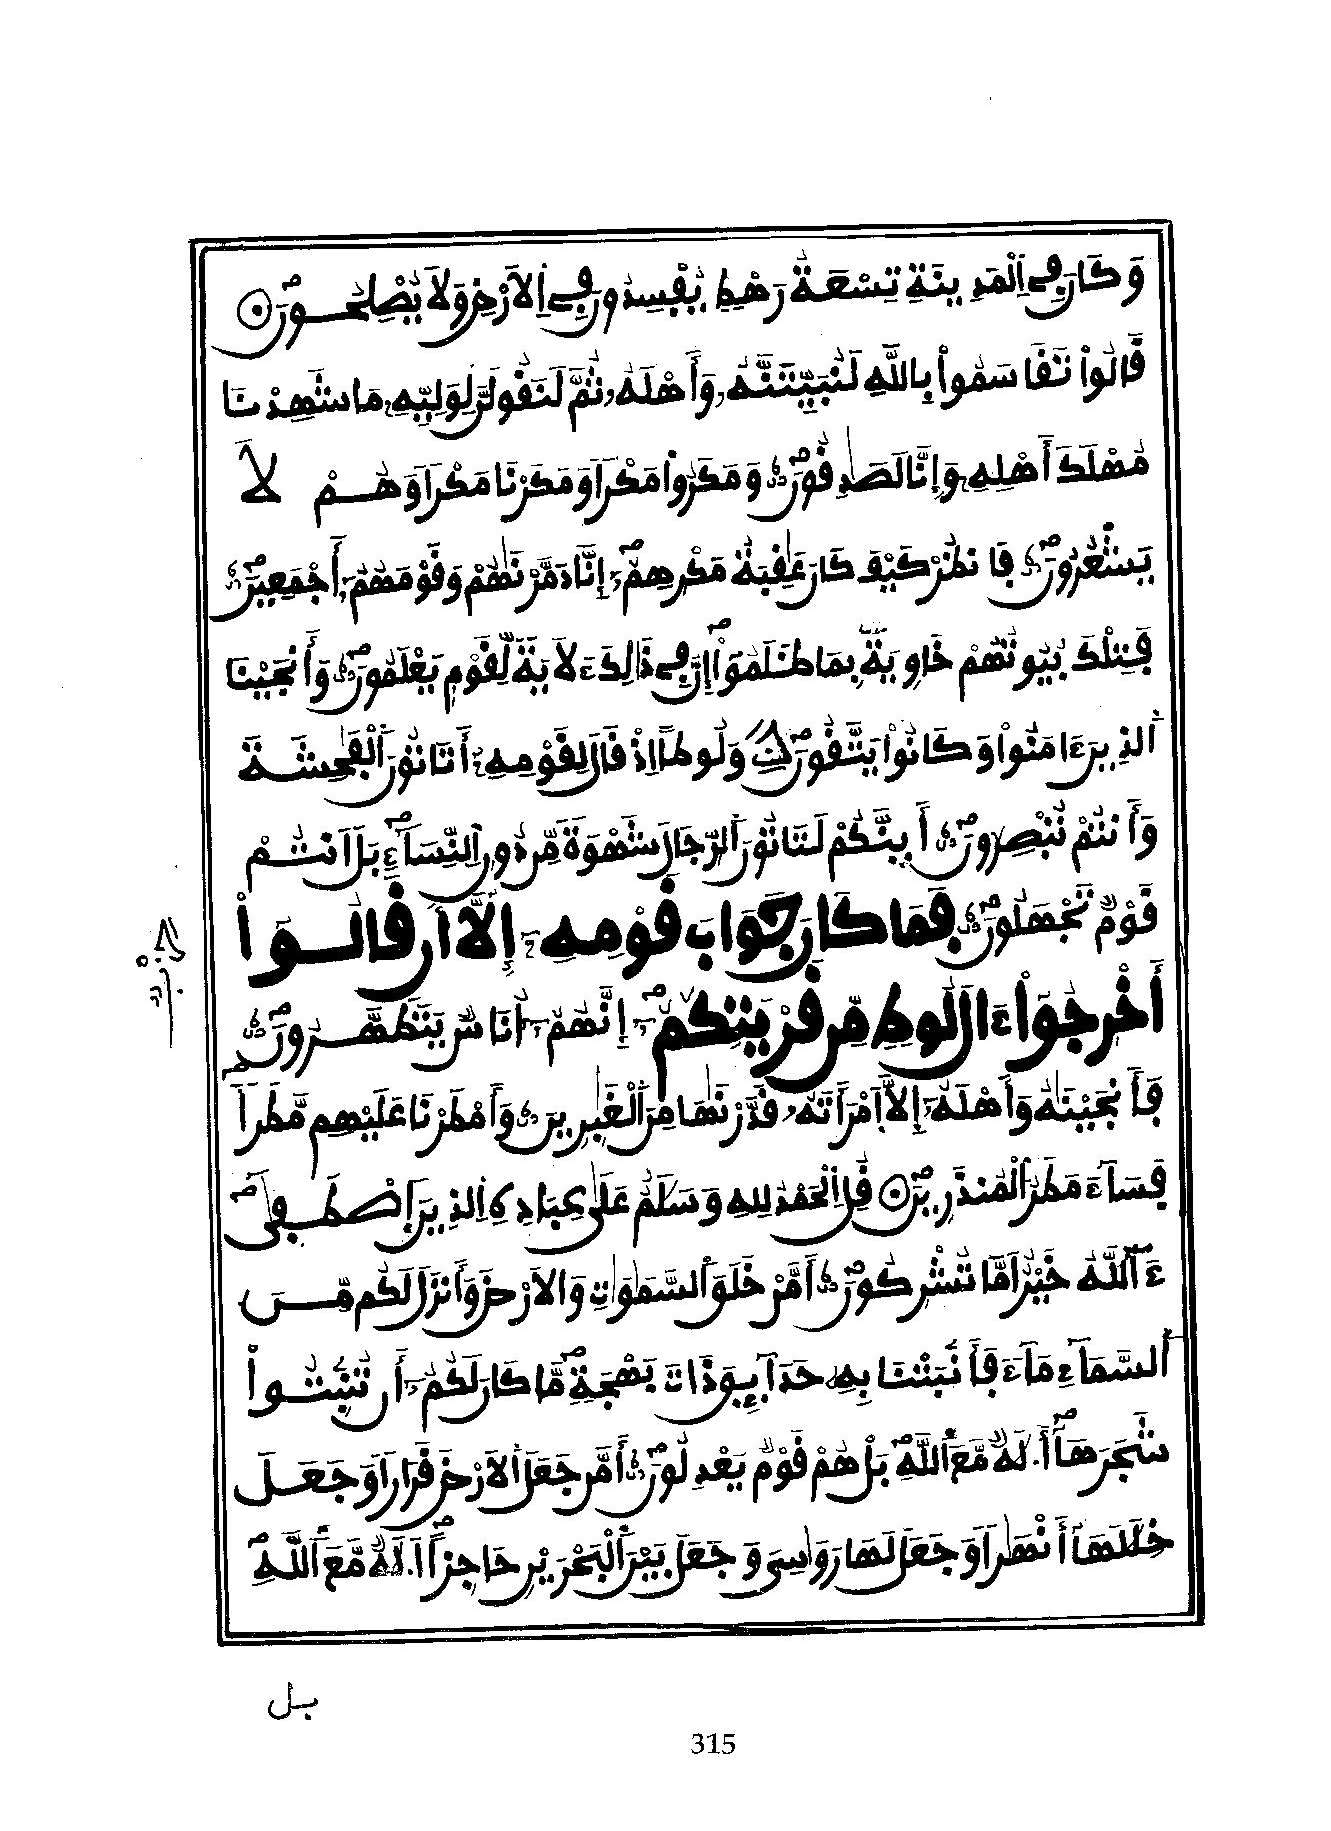 وَكَانَ فِي اِلْمَدِينَةِ تِسْعَةُ رَهْطٍ يُفْسِدُونَ فِي اِلَارْضِ وَلَا يُصْلِحُونَ
قَالُواْ تَقَاسَمُواْ بِاللَّهِ لَنُبَيِّتَنَّهُۥ وَأَهْلَهُۥ ثُمَّ لَنَقُولَنَّ لِوَلِيِّهِۦ مَا شَهِدْنَا
مُهْلَكَ أَهْلِهِۦ وَإِنَّا لَصَٰدِقُونَ وَمَكَرُواْ مَكْراً وَمَكَرْنَا مَكْراً وَهُمْ لَا
يَشْعُرُونَ فَانظُرْ كَيْفَ كَانَ عَٰقِبَةُ مَكْرِهِمُۥٓ إِنَّا دَمَّرْنَٰهُمْ وَقَوْمَهُمُۥٓ أَجْمَعِينَ
فَتِلْكَ بُيُوتُهُمْ خَاوِيَةَۢ بِمَا ظَلَمُوٓاْ إِنَّ فِي ذَٰلِكَ ءَلَايَةً لِّقَوْمٍ يَعْلَمُونَ وَأَنجَيْنَا
اَلذِينَ ءَامَنُواْ وَكَانُواْ يَتَّقُونَ وَلُوطاً اِذْ قَالَ لِقَوْمِهِۦٓ أَتَاتُونَ اَلْفَٰحِشَةَ
وَأَنتُمْ تُبْصِرُونَ أَىِٕنَّكُمْ لَتَاتُونَ اَلرِّجَالَ شَهْوَةً مِّن دُونِ اِلنِّسَآءِ بَلَ اَنتُمْ
قَوْمٌ تَجْهَلُونَ فَمَا كَانَ جَوَابَ قَوْمِهِۦٓ إِلَّآ أَن قَالُوٓاْ
أَخْرِجُوٓاْ ءَالَ لُوطٍ مِّن قَرْيَتِكُمُۥٓ إِنَّهُمُۥٓ أُنَاسٌ يَتَطَهَّرُونَ
فَأَنجَيْنَٰهُ وَأَهْلَهُۥٓ إِلَّا اَمْرَأَتَهُۥ قَدَّرْنَٰهَا مِنَ اَلْغَٰبِرِينَ وَأَمْطَرْنَا عَلَيْهِم مَّطَراً
فَسَآءَ مَطَرُ اَلْمُنذَرِينَ قُلِ اِلْحَمْدُ لِلهِ وَسَلَٰمٌ عَلَىٰ عِبَادِهِ اِلذِينَ اَصْطَفِىٰٓ
ءَآللَّهُ خَيْرٌ اَمَّا تُشْرِكُونَ أَمَّنْ خَلَقَ اَلسَّمَٰوَٰتِ وَالَارْضَ وَأَنزَلَ لَكُم مِّنَ
اَلسَّمَآءِ مَآءً فَأَنۢبَتْنَا بِهِۦ حَدَآئِقَ ذَاتَ بَهْجَةٍ مَّا كَانَ لَكُمُۥٓ أَن تُنۢبِتُواْ
شَجَرَهَآ أَ۟لَٰهٌ مَّعَ اَللَّهِ بَلْ هُمْ قَوْمٌ يَعْدِلُونَ أَمَّن جَعَلَ اَلَارْضَ قَرَاراً وَجَعَلَ
خِلَٰلَهَآ أَنْهَٰراً وَجَعَلَ لَهَا رَوَٰسِيَ وَجَعَلَ بَيْنَ اَلْبَحْرَيْنِ حَاجِزاً اَ۟لَٰهٌ مَّعَ اَللَّهِ
بل
315